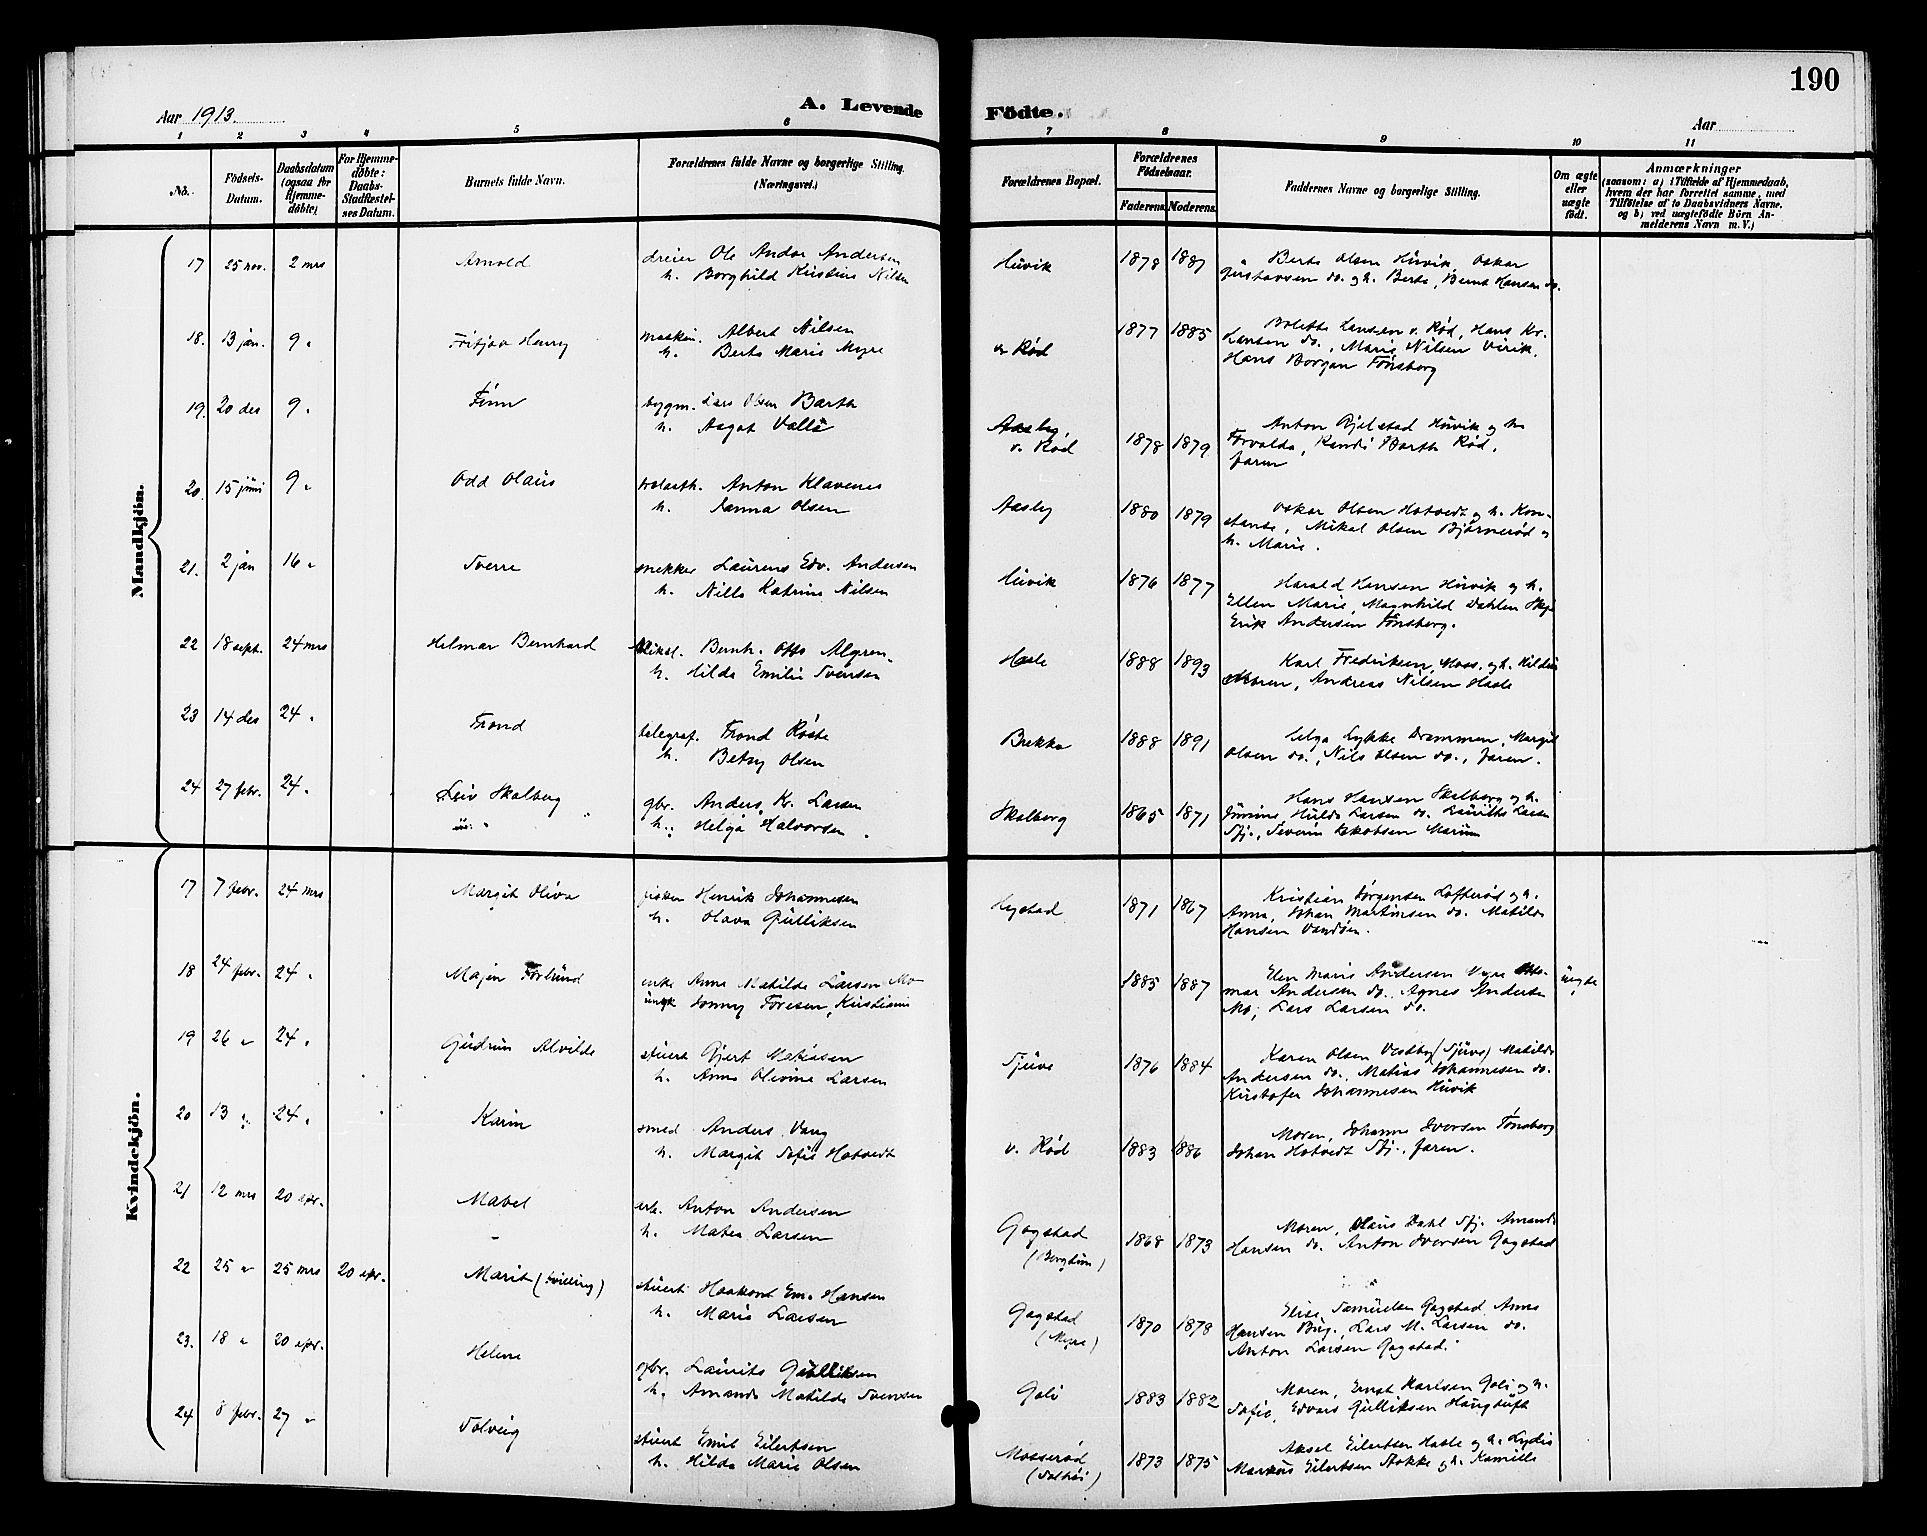 190
Aar 1913.
A. Levende
Födte.
Aar
1 2 3 4 5 6 7 8 9 10 11
No.
Födsels-
Datum.
Daabsdatum
(ogsaa for
Hjemme-
döbte)
For Hjemme-
döbte:
Daabs-
Stadfæstel-
ses Datum.
Barnets fulde Navn.
Forældrenes fulde Navne og borgerlige Stilling.
(Næringsvei.)
Forældrenes Bopæl.
Forældrenes
Födselsaar.
Faderens. Moderens.
Faddernes Navne og borgerlige Stilling.
Om ægte
eller
uægte
født.
Anmærkninger
(saasom: a) i Tilfælde af Hjemmedaab,
hvem der har forrettet samme, med
Tilföielse af to Daabsvidners Navne,
og b) ved uægtefødte Börn An-
melderens Navn m. V.)
Mandkjön.
17 25 nov. 2 mrs Arnold
dreier Ole Andor Andersen
h. Borghild Kristine Nilsen
Húvik 1878 1881
Berte Olsen Húvik, Oskar
Gustavsen do. og h. Berte, Bernt Hansen do.
18. 13 jan. 9 „ Fritjov Henry
maskin. Albert Nilsen
h. Berte Marie Myre
v. Rød 1877 1885
Bolette Hansen v. Rød, Hans Kr.
Hansen do., Marie Nilsen Virik,
Hans Borgan Tönsberg
19. 20 des 9 „ Finn
bygm. Lars Olsen Barth
h. Aagot Vallö
Aasly
v. Rød 1878 1879
Anton Bjelstad Húvik og h.
Torvalda, Randi Barth Rød,
faren
20. 15 júni 9 „ Odd Olaús
Anton Klavenes
h. Janna Olsen
Aasly 1880 1879
Oskar Olsen Hotvedt og h. Kon-
stanse, Mikal Olsen Bjørnerød og
h. Marie.
21. 2 jan 16 „ Sverre
snekker Laurens Edv. Andersen
h. Nille Katrine Nilsen
Húvik 1876 1877
Harald Hansen Húvik og h.
Ellen Marie, Magnhild Dahlen
Erik Andersen Tønsberg.
22 18 sept. 24 mrs Helmar Bernhard
Bernh. Otto Algren
h. Hilda Emilie Svensen
Hasle 1888 1893
Karl Fredriksen, Moss, og h.
moren, Andreas Nilsen Hasle
23 14 des 24 „ Trond
telegraf. Trond Røste
h. Betsy Olsen
Brekke 1888 1891
Helga Lykke Drammen, Margit
Olsen do., Nils Olsen do., faren.
24 27 febr. 24 „ Leiv Skalberg
gbr. Anders Kr. Larsen
h. Helga Halvorsen
Skalberg 1865 1871
Hans Hansen Skalberg og h.
Júnine, Hulda Larsen do. Lauritz Larsen
Sfj., Severin Jakobsen Marum
Kvindekjön.
17 7 febr. 24 mrs Margit Oliva
fisker Henrik Johannesen
h. Olava Gulliksen
Nystad 1871 1867
Kristian Jørgensen Lofterød og h.
Anna, Johan Martinsen do. Matilde
Hansen
18 24 febr. 24 „ Majen
enke Anna Matilde Larsen Mo
Kristiania
1885 1887
Elen Marie Andersen
Andersen do., Agnes Andersen
Mo, Lars Larsen do.
úegte
19 26 „ 24 „ Gúdrún Alvilde
stuert Gjert Matiasen
h. Anne Olivine Larsen
Sjúve 1876 1884
Karen Olsen Vestby (Sjúve) Matilde
Andersen do., Matias Johannesen do.
Kristofer Johannesen Húvik
20 13 „ 24 „ Karin
smed Anders Vang
h. Margit Sofie Hotvedt
v. Rød 1883 1886
Moren, Johanne Iversen Tønsberg
Johan Hotvedt Sfj., faren.
21 12 mrs 20 apr. Mabel
arb. Anton Andersen
h. Matea Larsen
Gogstad 1868 1873
Moren, Olaus Dahl Sfj. Amanda
Hansen do. Anton Iversen Gogstad
22 25 „ 25 mrs 20 apr. Marit (tvilling)
stuert Haakon Em. Hansen
h. Marie Larsen
Gogstad
(Myra) 1870 1878
Elise Samuelsen Gogstad Anna
Hansen Bug., Lars M. Larsen do.
Anton Larsen Gogstad.
23. 18 „ 20 apr. Helene
gbr. Laurits Gulliksen
h. Amanda Matilde Svensen
Goli 1883 1882
Moren, Ernst Karlsen Goli og h.
Sofie, Edvard Gulliksen Haugtuft
24 8 febr. 27 „ Solveig
stuert Emil Eilertsen
h. Hilda Marie Olsen
Mosserød
(Solhøi) 1873 1875
Aksel Eilertsen Hasle og h. Lydia
Markus Eilertsen Stokke og h. Kamilla